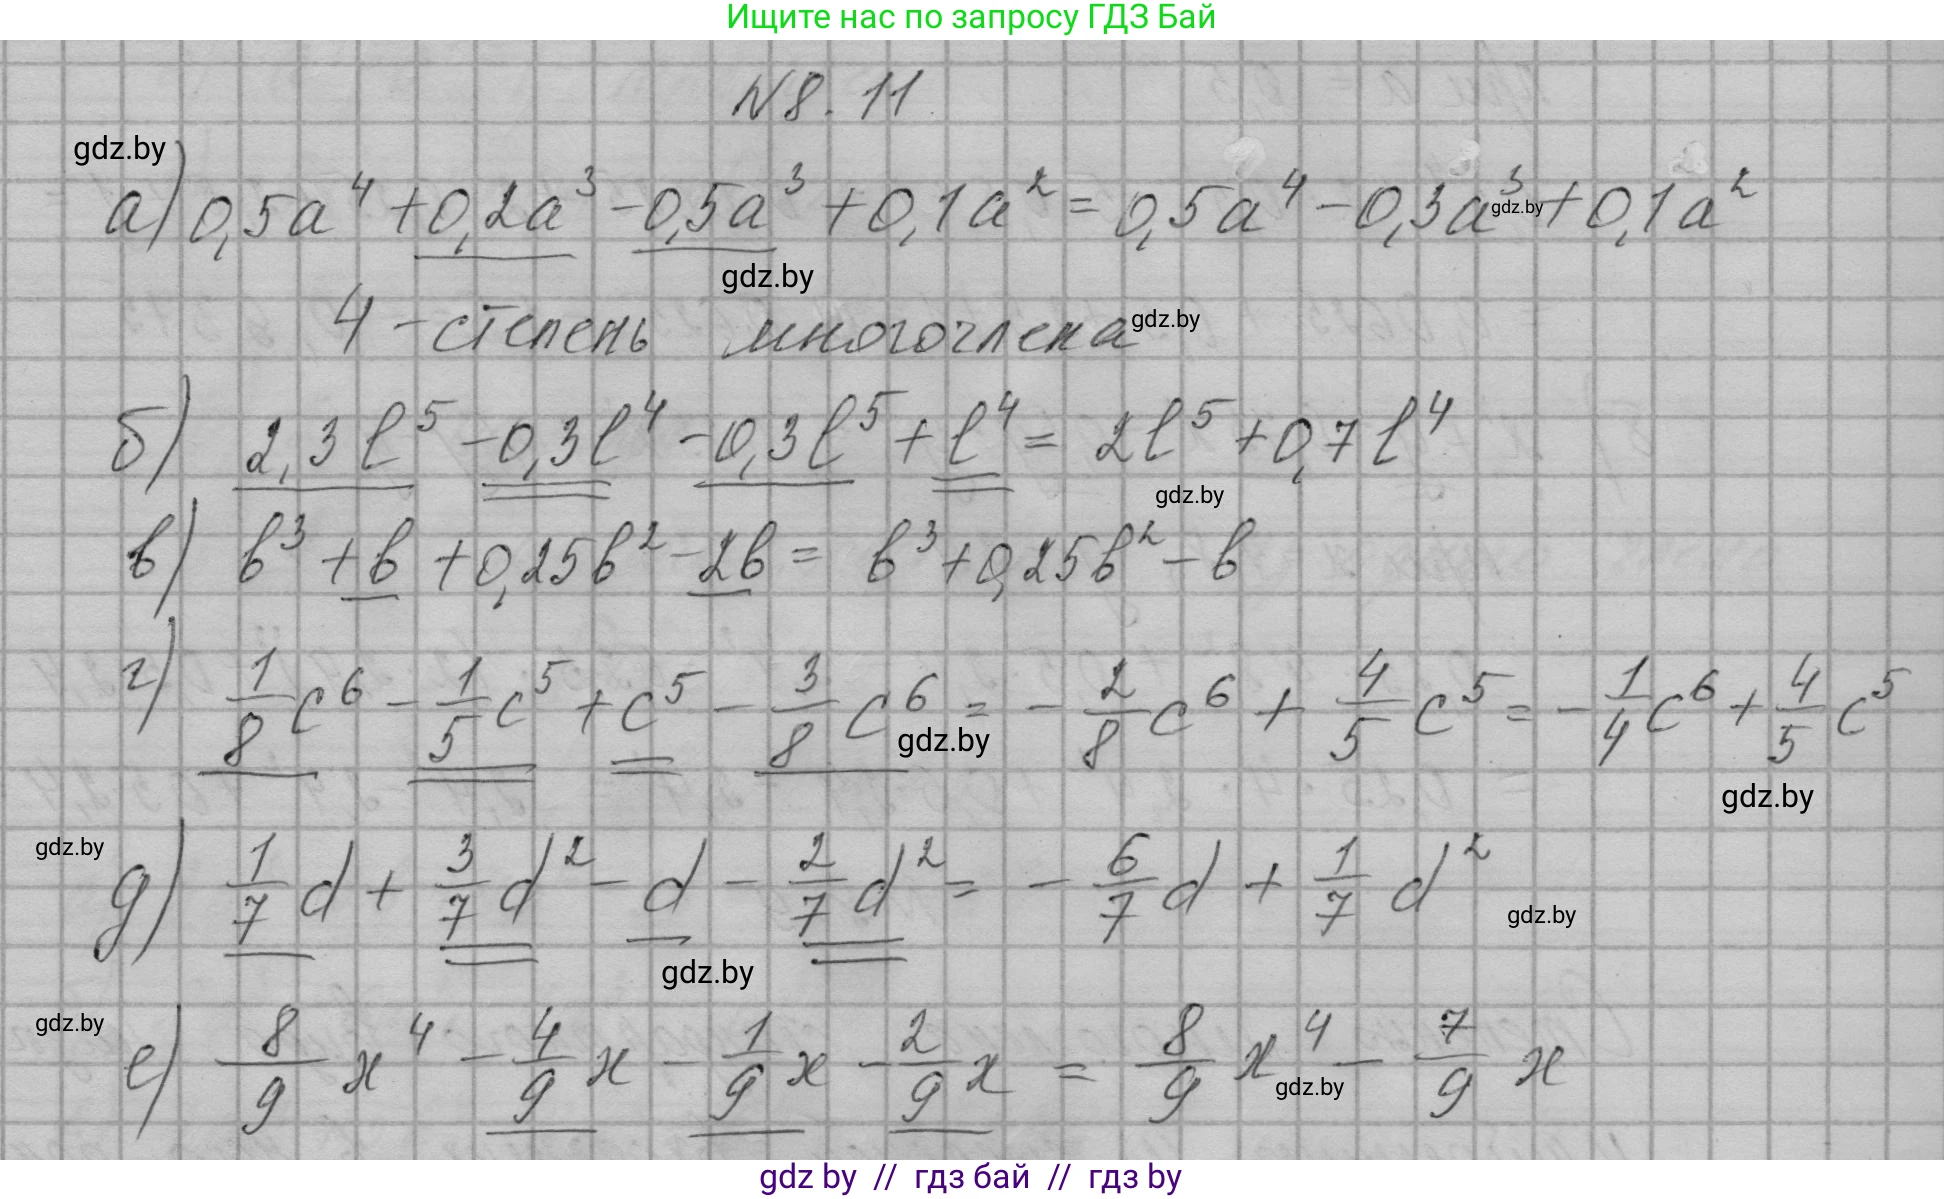 Ищите нас по запросу ГДЗ Бай
N8.11
gdz.by
а) 0,5a⁴ + 0,2a³ - 0,5a³ + 0,1a² = 0,5a⁴ - 0,3a³ + 0,1a²
gdz.by
gdz.by
4 - степень многочлена
gdz.by
б) 2,3l⁵ - 0,3l⁴ - 0,3l⁵ + l⁴ = 2l⁵ + 0,7l⁴
gdz.by
в) b³ + b + 0,25b² - 2b = b³ + 0,25b² - b
г) 1/8 c⁶ - 1/5 c⁵ + c⁵ - 3/8 c⁶ = - 2/8 c⁶ + 4/5 c⁵ = - 1/4 c⁶ + 4/5 c⁵
gdz.by
gdz.by
gdz.by
д) 1/7 d + 3/7 d² - d - 2/7 d² = - 6/7 d + 1/7 d²
gdz.by
gdz.by
gdz.by
е) 8/9 x⁴ - 4/9 x - 1/9 x - 2/9 x = 8/9 x⁴ - 7/9 x
gdz.by
gdz by // гдз бай // гдз by